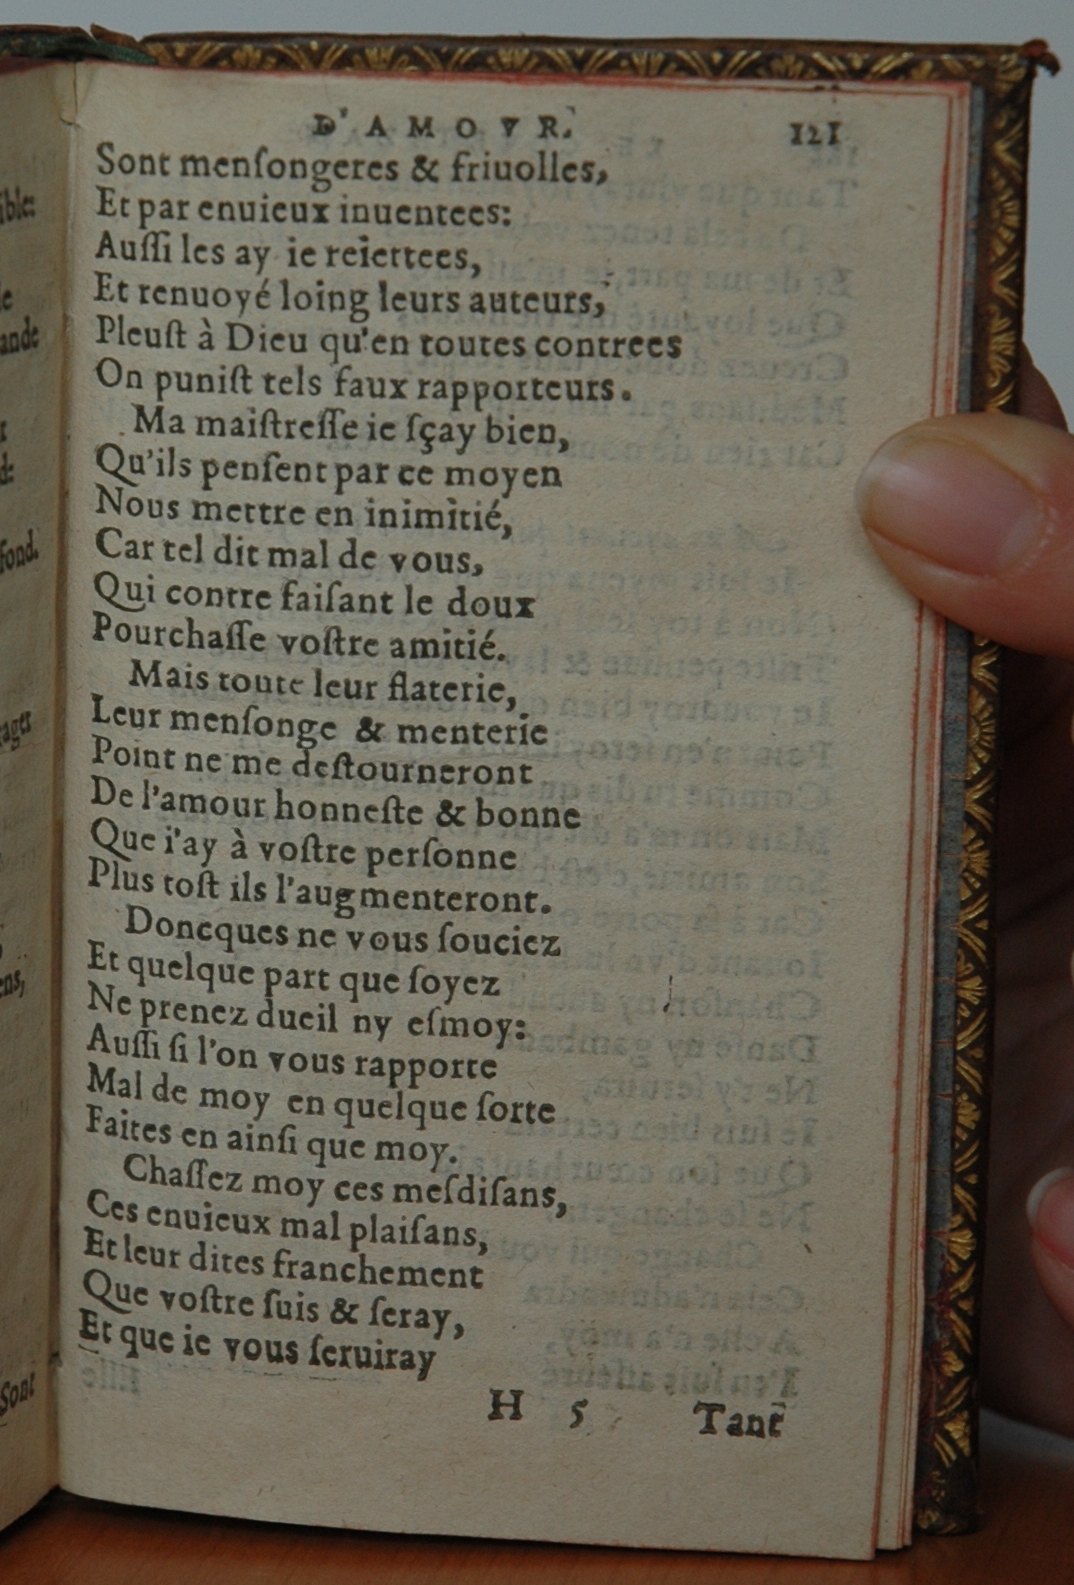 D'AMOVR. 121
Sont menſongeres & friuolles,
Et par enuieux inuentees:
Auſſi les ay ie reiettees,
Et renuoyé loing leurs auteurs,
Pleuſt à Dieu qu'en toutes contrees
On puniſt tels faux rapporteurs.
Ma maiſtreſſe ie ſçay bien,
Qu'ils penſent par ce moyen
Nous mettre en inimitié,
Car tel dit mal de vous,
Qui contre faiſant le doux
Pourchaſſe voſtre amitié.
Mais toute leur flaterie,
Leur menſonge & menterie
Point ne me deſtourneront
De l'amour honneſte & bonne
Que i'ay à voſtre perſonne
Plus toſt ils l'augmenteront.
Doncques ne vous ſouciez
Et quelque part que ſoyez
Ne prenez dueil ny eſmoy:
Auſſi ſi l'on vous rapporte
Mal de moy en quelque ſorte
Faites en ainſi que moy.
Chaſſez moy ces meſdiſans,
Ces enuieux mal plaiſans,
Et leur dites franchement
Que voſtre ſuis & ſeray,
Et que ie vous ſeruiray
H 5 Tant
fond.
Sont